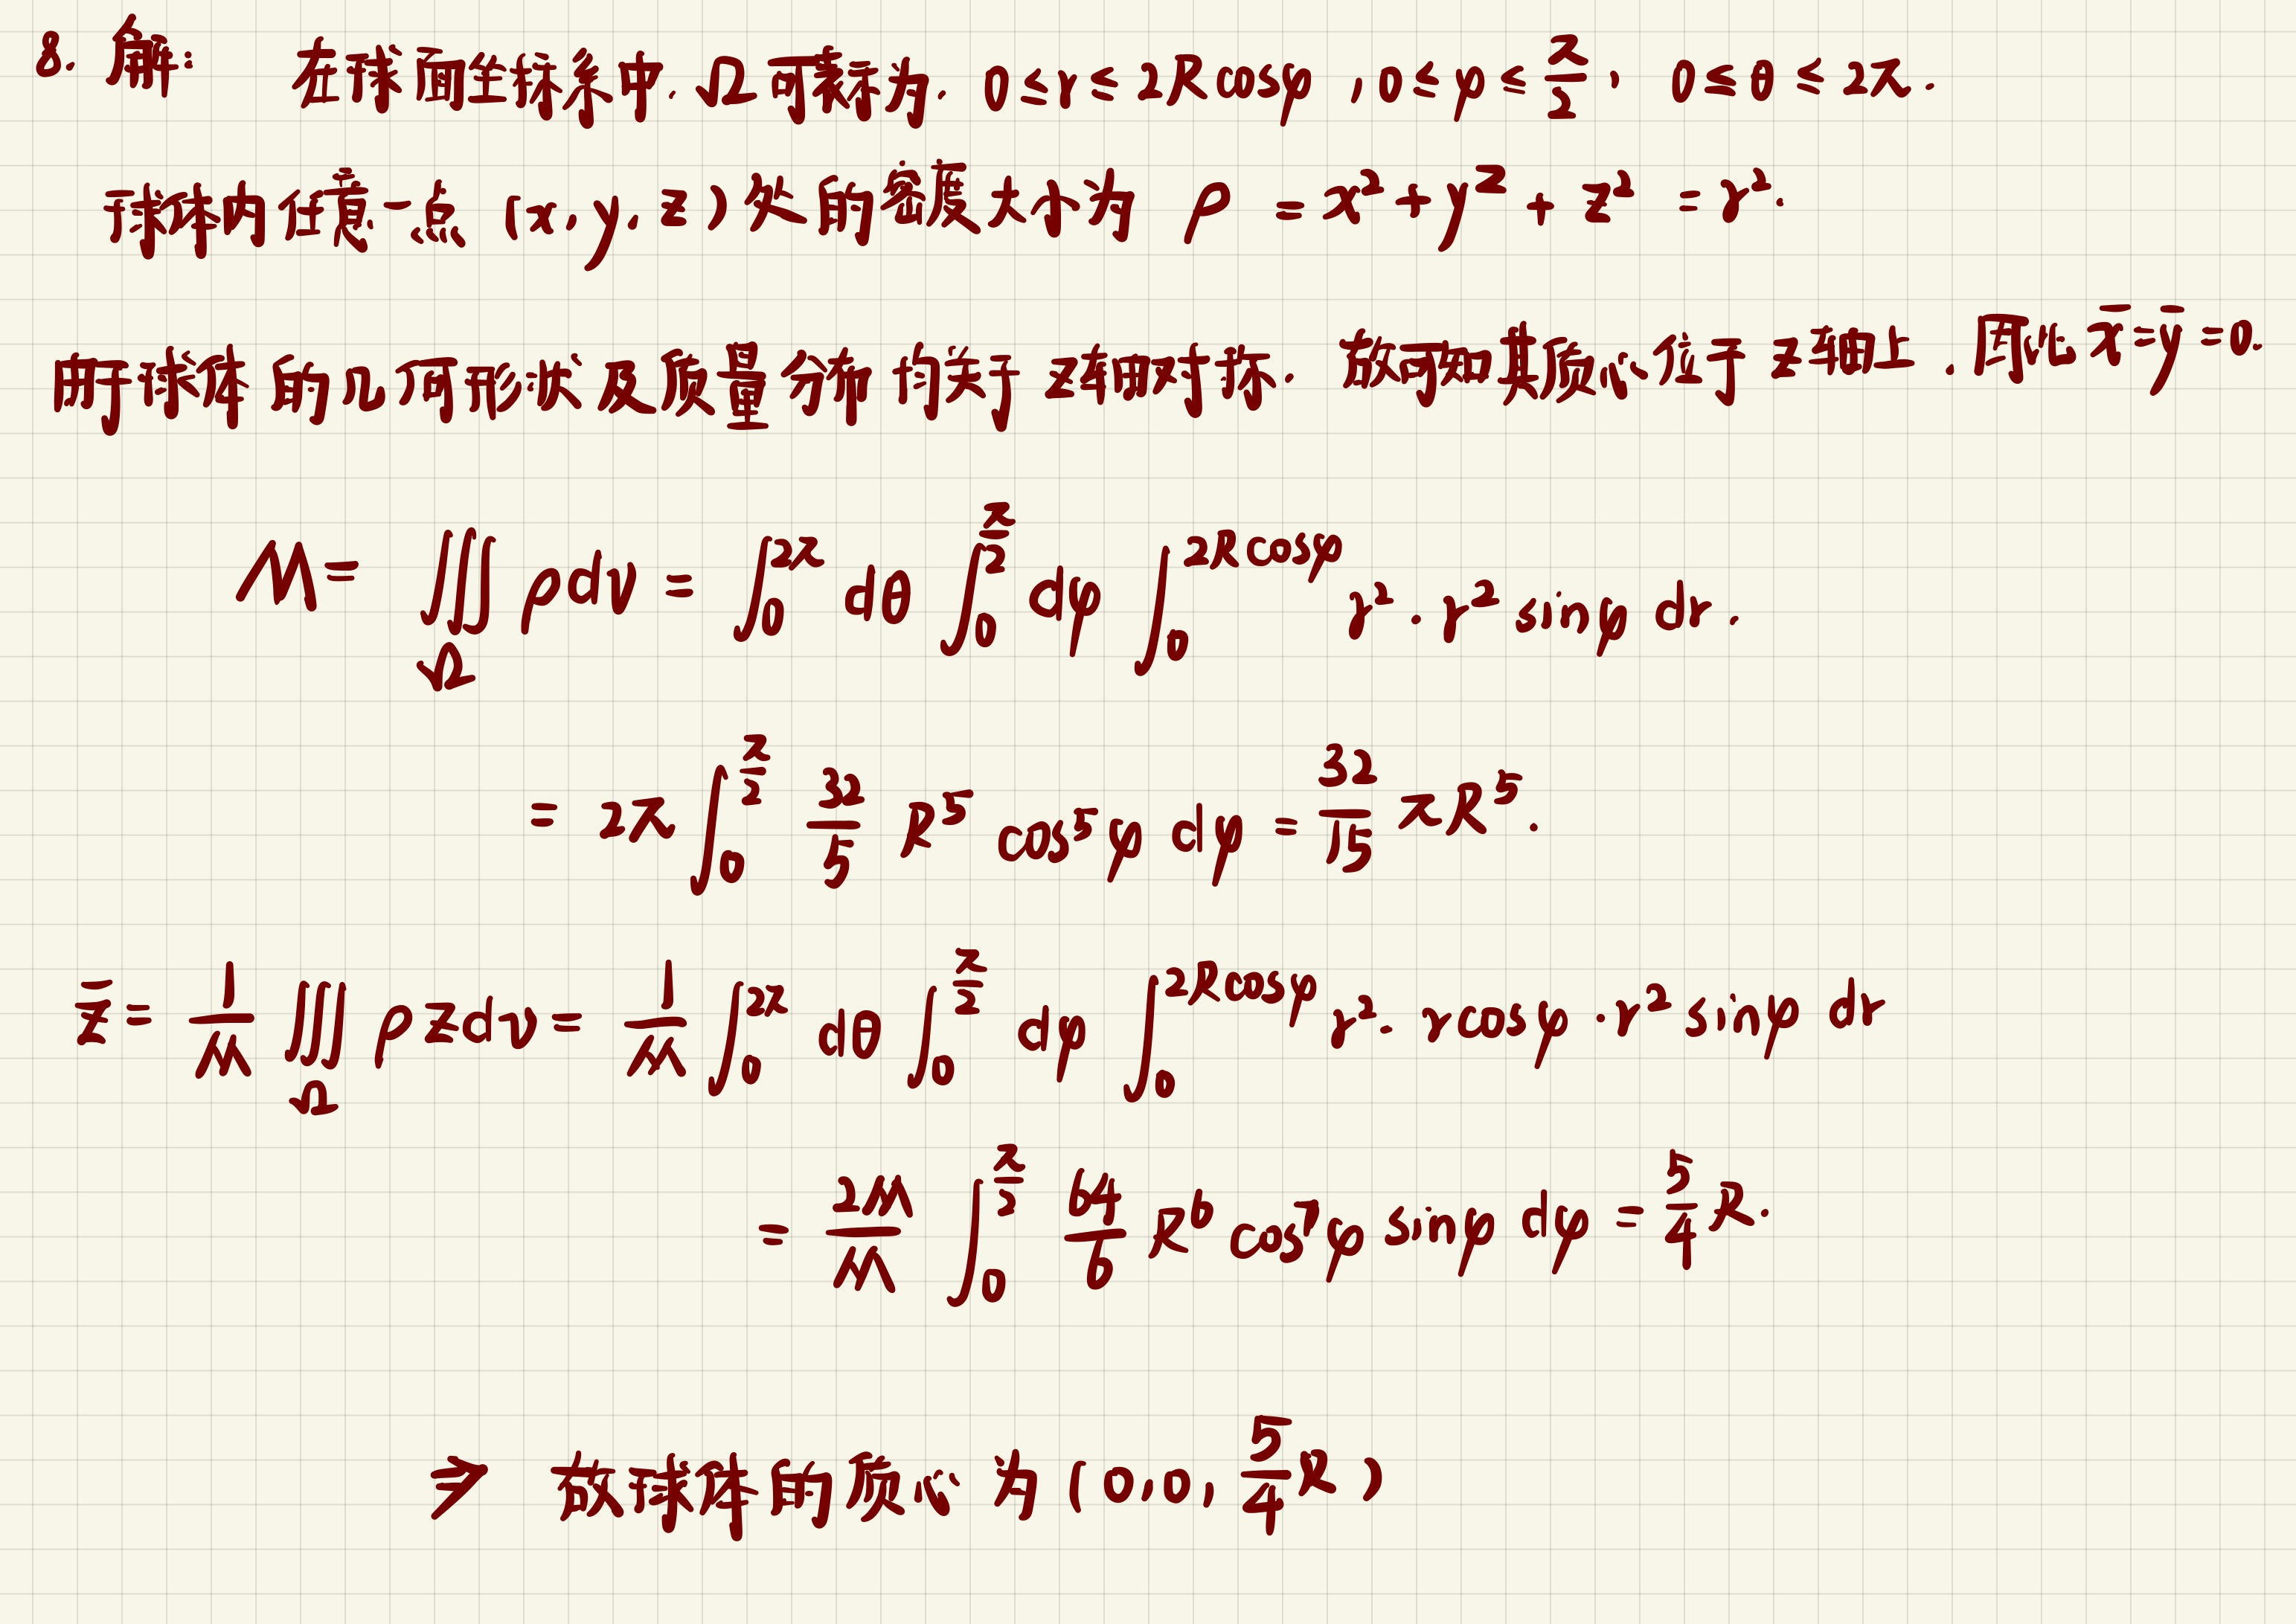 8. 解: 在球面坐标系中. Ω可表示为. 0≤r≤2Rcosφ ,0≤φ≤π/2, 0≤θ≤2π.
球体内任意一点 (x,y,z)处的密度大小为 ρ =x²+y²+z² =r².
由于球体的几何形状及质量分布均关于z轴对称. 故可知其质心位于z轴上. 因此 x̄=ȳ=0.
M= ∭_Ω ρdv = ∫_0^{2π} dθ ∫_0^{π/2} dφ ∫_0^{2Rcosφ} r²·r² sinφ dr.
= 2π ∫_0^{π/2} 32/5 R⁵ cos⁵φ dφ = 32/15 πR⁵.
z̄= 1/M ∭_Ω ρzdv = 1/M ∫_0^{2π} dθ ∫_0^{π/2} dφ ∫_0^{2Rcosφ} r²·rcosφ·r² sinφ dr
= 2M/M ∫_0^{π/2} 64/6 R⁶ cos⁷φ sinφ dφ = 5/4 R.
⇒ 故球体的质心为(0,0, 5/4 R)